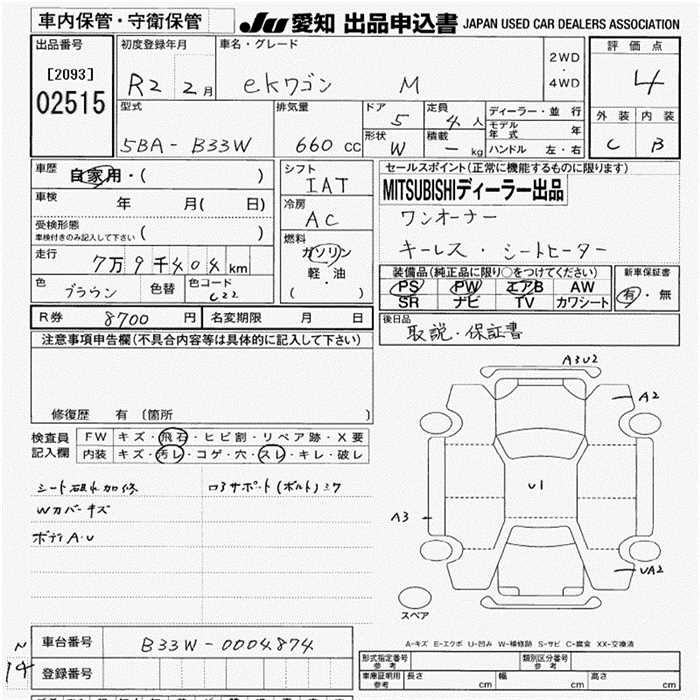 車内保管・守衛保管
JU 愛知 出品申込書 JAPAN USED CAR DEALERS ASSOCIATION
出品番号
[2093]
02515
初度登録年月
R2 2月
車名・グレード
ekワゴン M
2WD
・
4WD
評価点
4
外装 内装
C B
型式
5BA - B33W
排気量
660 cc
ドア 5
定員 4人
形状 W
積載 - kg
ディーラー・並行
モデル年式 年
ハンドル 左・右
車歴
自家用・( )
車検 年 月( 日)
受検形態
車検付きのみ記入して下さい ( )
走行
7万9千404km
色 ブラウン
色替
色コード C22
シフト
IAT
冷房
AC
燃料
ガソリン
軽・油
( )
セールスポイント(正常に機能するものに限ります)
MITSUBISHIディーラー出品
ワンオーナー
キーレス・シートヒーター
装備品(純正品に限り○をつけてください)
PS PW エアB AW
SR ナビ TV カワシート
新車保証書
有・無
R券 8700円
名変期限 月 日
後日品
取説・保証書
注意事項申告欄(不具合内容等は具体的に記入して下さい)
修復歴 有〔箇所 〕
検査員
記入欄
FW キズ・飛石・ヒビ割・リペア跡・X要
内装 キズ・汚レ・コゲ・穴・スレ・キレ・破レ
Wカバーキズ
ボディA・U
コアサポート(ボルト)ミク
A3U2
A2
U1
A3
UA2
スペア
車台番号 B33W-0004874
登録番号
N
14
A-キズ E-エクボ U-凹み W-補修跡 S-サビ C-腐食 XX-交換済
形式指定番号
参考
類別区分番号
参考
車庫証明用
参考
長さ cm
幅 cm
高さ cm